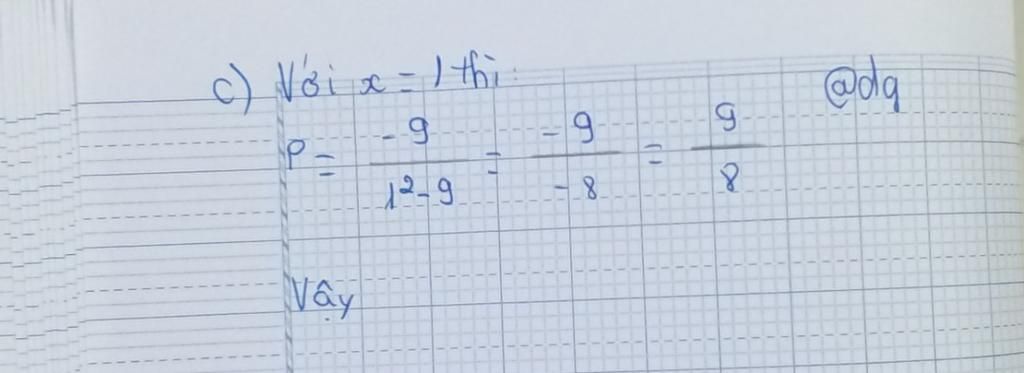 c) Với x = 1 thì: @dg
P = -9 / 1²-9 = -9 / -8 = 9 / 8
Vậy